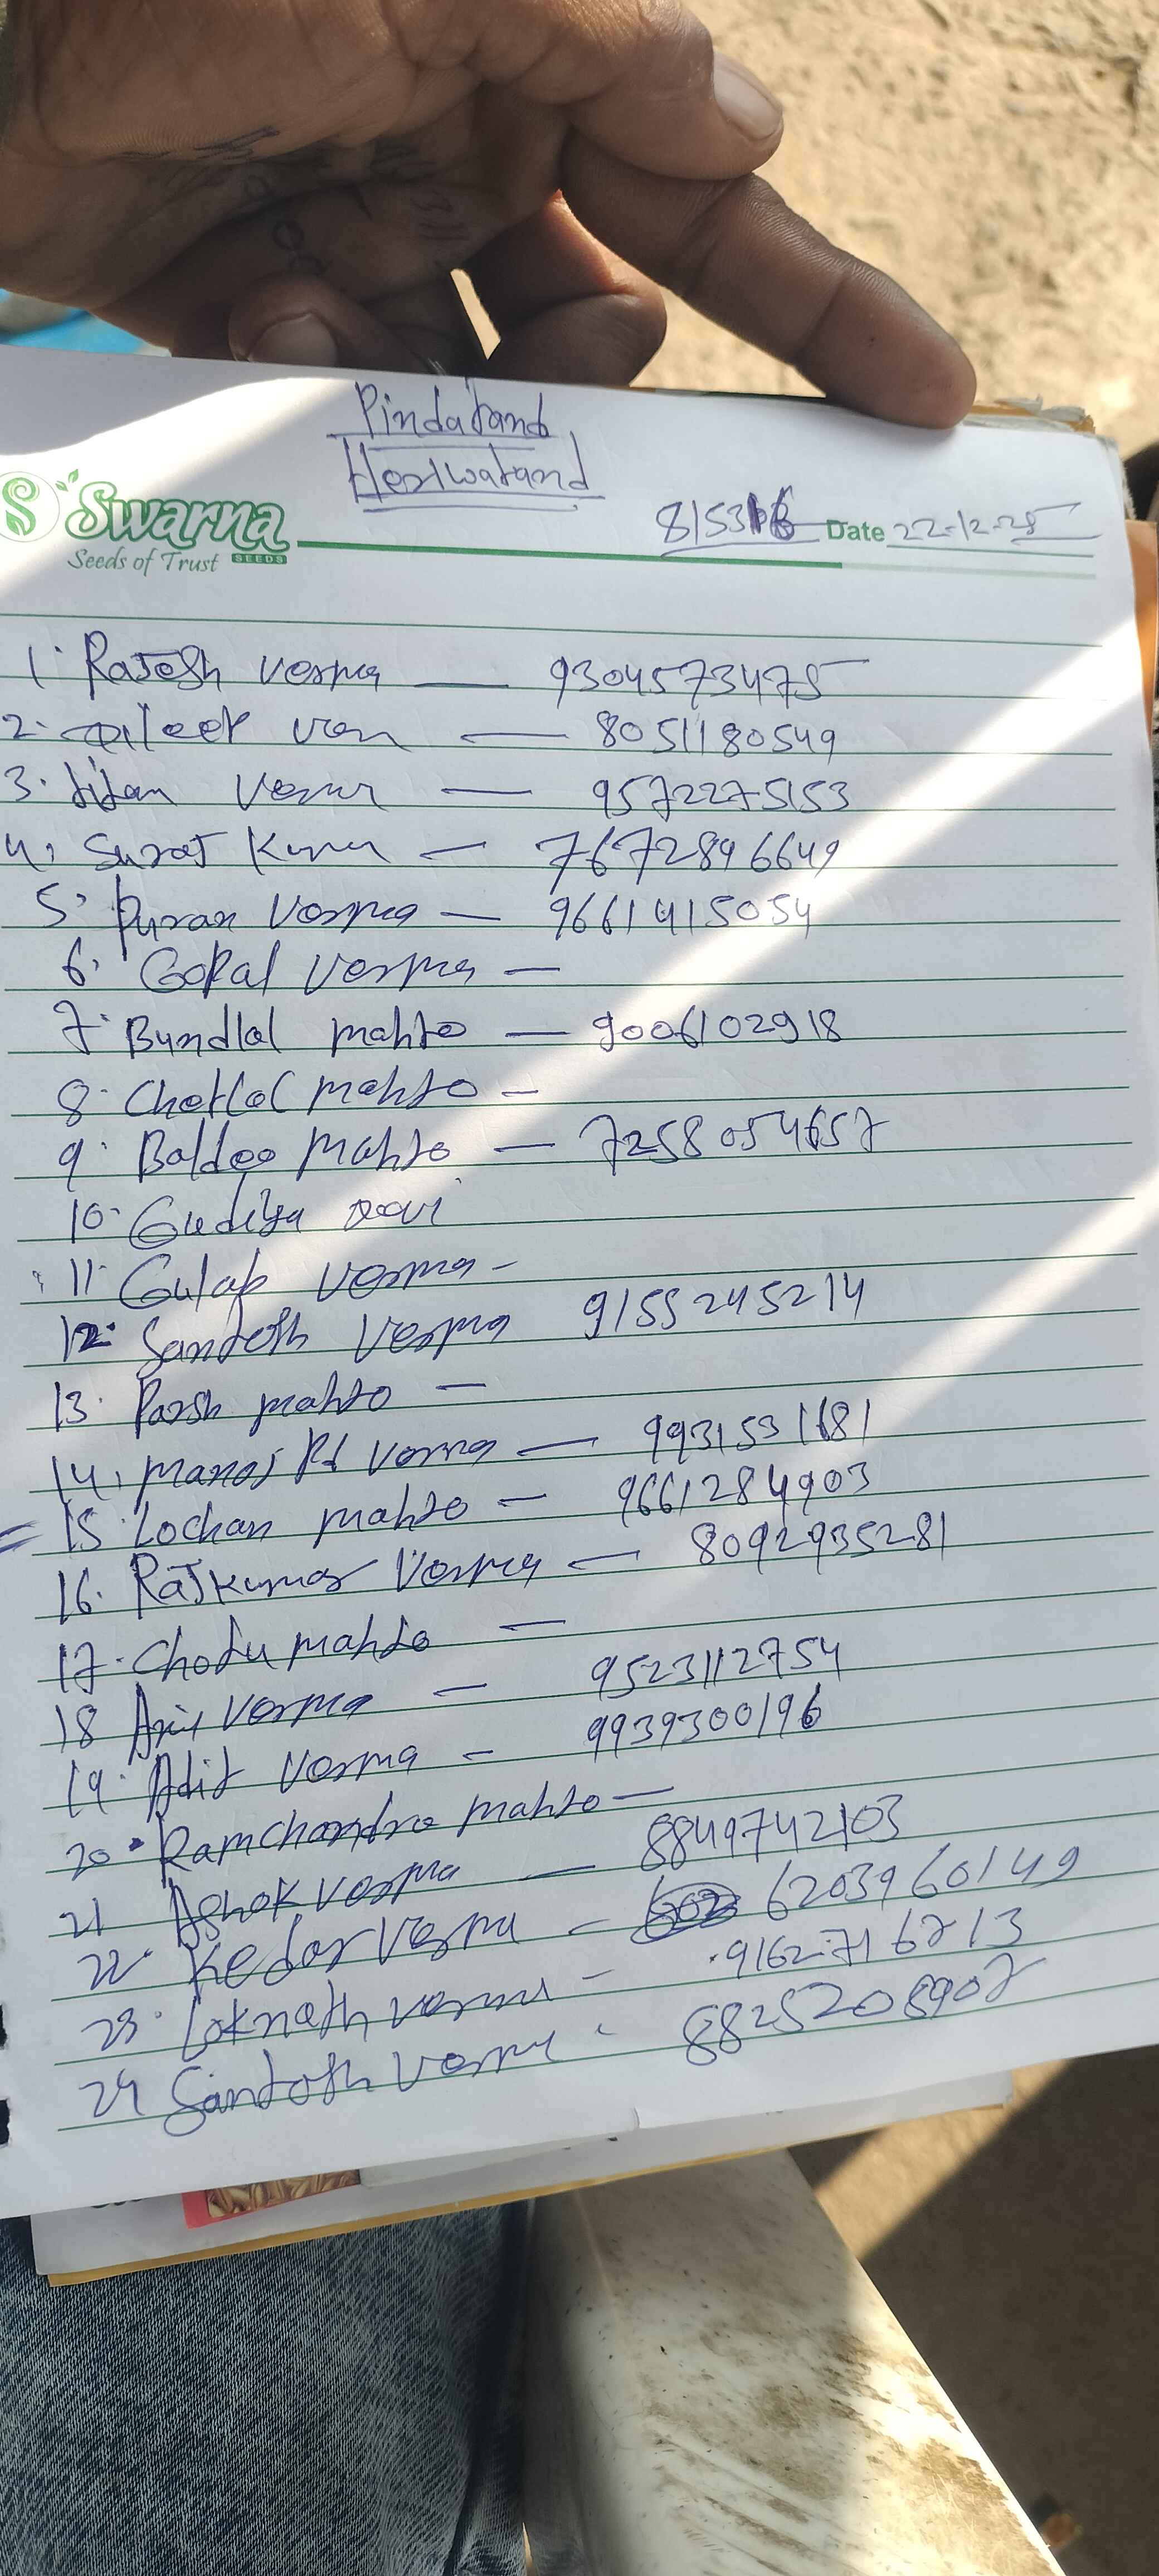 Pindatand
Hesalwatand
Swarna
Seeds of Trust SEEDS
815316 Date 22-12-25
1. Rajesh Verma — 9304573475
2. — 8051180549
3. Jitan Verma — 9572275153
4. Suraj Kumar — 7672896649
5. Puran Verma — 9661415054
6. Gopal Verma —
7. Bundlal Mahto — 9006102918
8. Chetlal Mahto —
9. Baldeo Mahto — 7258054657
10. Gudiya Devi
11. Gulab Verma -
12. Santosh Verma 9155245214
13. Parsh Mahto —
14. Manoj Pd Verma — 9931531681
15. Lochan Mahto — 9661284903
16. Rajkumar Verma — 8092935281
17. Chotu Mahto —
18 Verma — 9523112754
19. Adit Verma — 9939300196
20. Ramchandra Mahto —
21 Ashok Verma — 8849742103
22. Kedar Verma — 6203960149
23. Loknath Verma — 9162716213
24 Santosh Verma - 8825208902